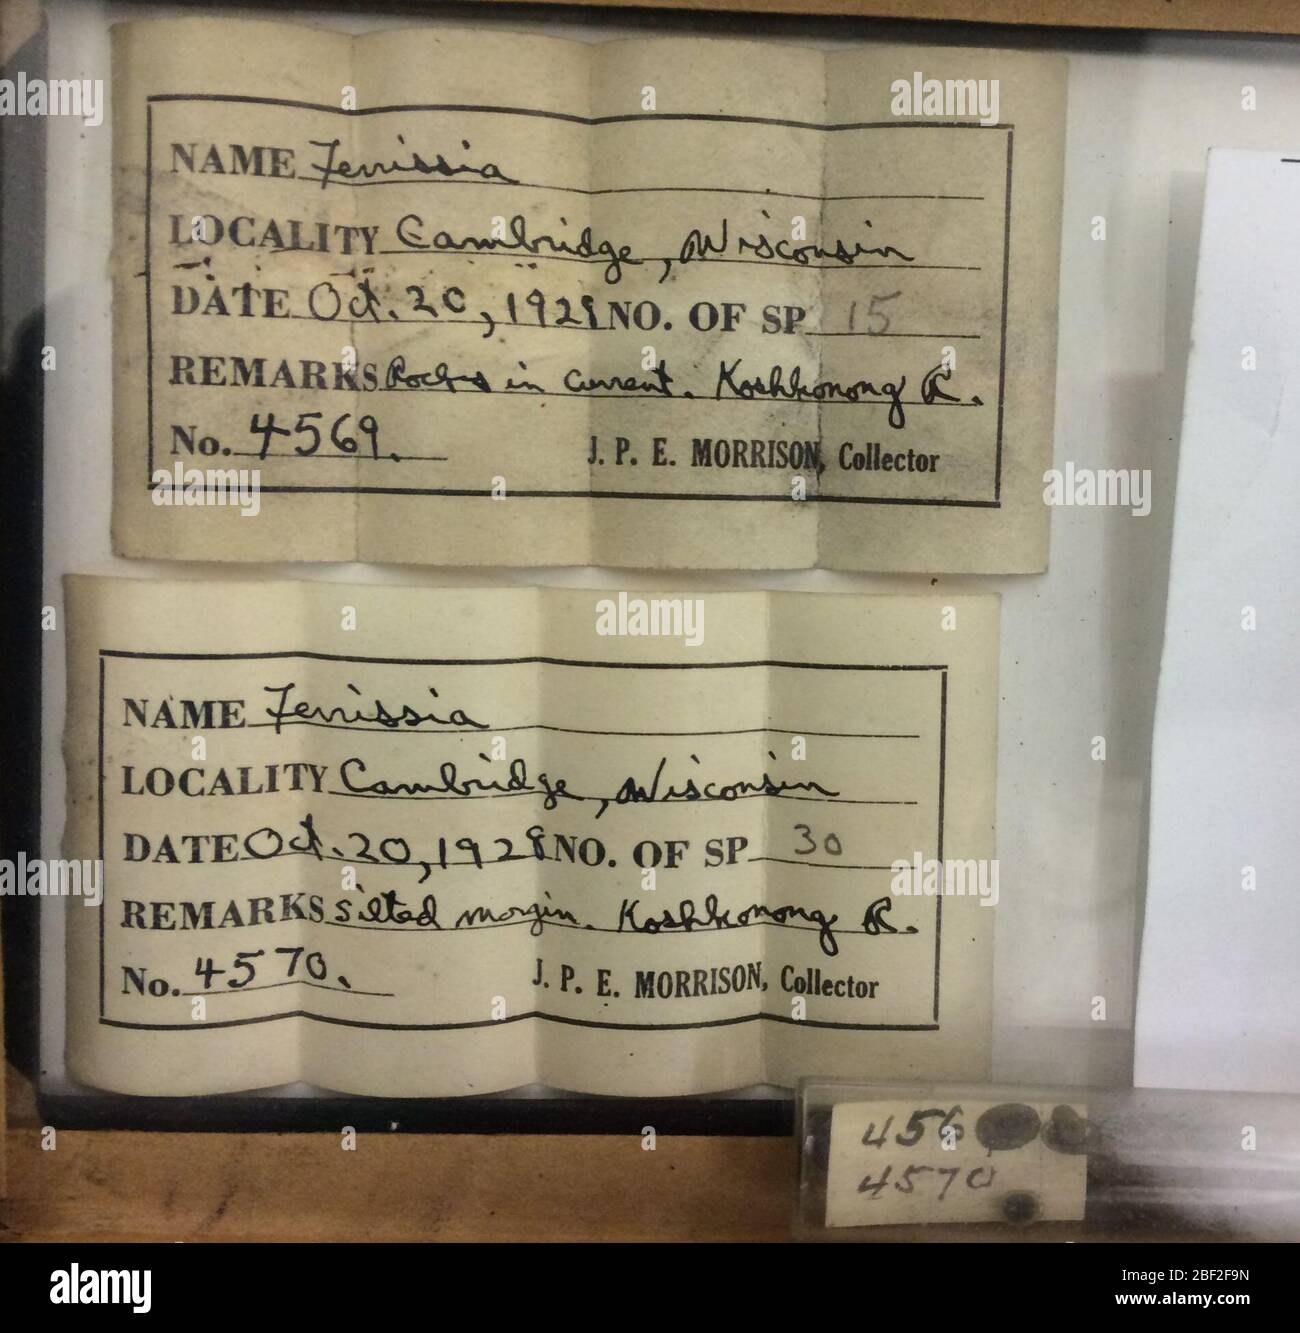 NAME Ferrissia
LOCALITY Cambridge, Wisconsin
DATE Oct. 20, 1929 NO. OF SP 15
REMARKS Rocks in current. Koshkonong R.
No. 4569.
J. P. E. MORRISON, Collector
NAME Ferrissia
LOCALITY Cambridge, Wisconsin
DATE Oct. 20, 1929 NO. OF SP 30
REMARKS Silted margin. Koshkonong R.
No. 4570.
J. P. E. MORRISON, Collector
456
4570
alamy
Image ID: 2BF2F9N
www.alamy.com